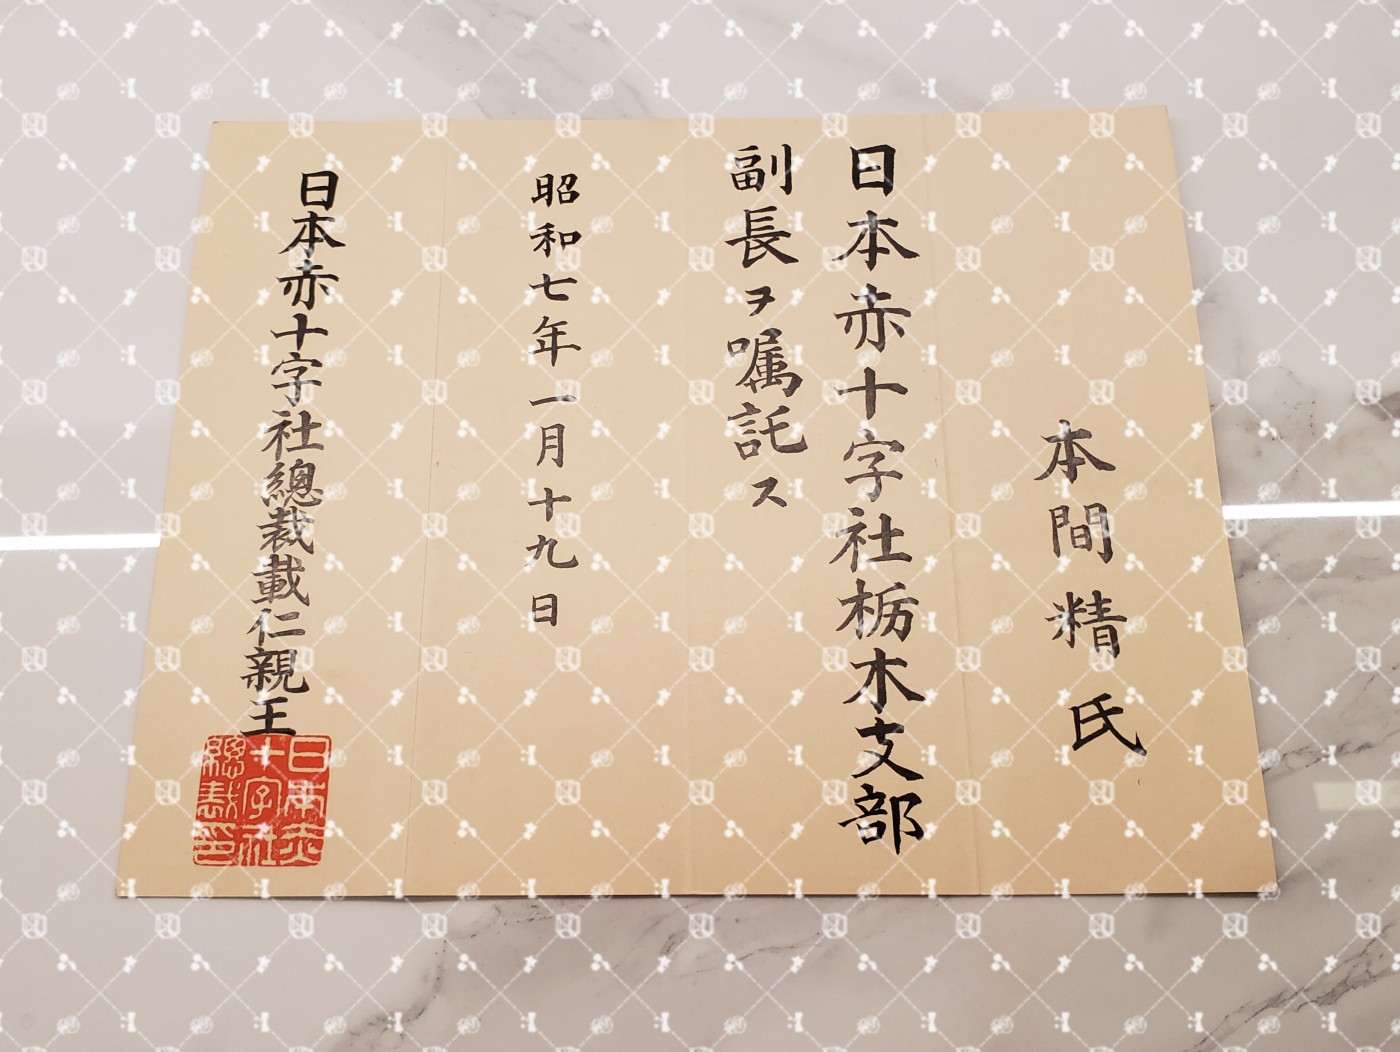 本間精氏
日本赤十字社栃木支部
副長ヲ嘱託ス
昭和七年一月十九日
日本赤十字社總裁載仁親王
日本赤
十字社
總裁印